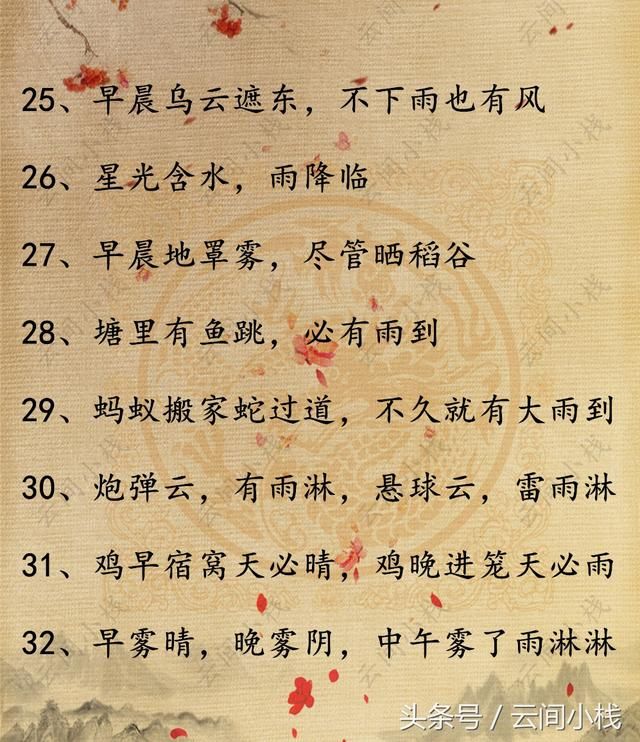 25、早晨乌云遮东，不下雨也有风
26、星光含水，雨降临
27、早晨地罩雾，尽管晒稻谷
28、塘里有鱼跳，必有雨到
29、蚂蚁搬家蛇过道，不久就有大雨到
30、炮弹云，有雨淋，悬球云，雷雨淋
31、鸡早宿窝天必晴，鸡晚进笼天必雨
32、早雾晴，晚雾阴，中午雾了雨淋淋
头条号／云间小栈